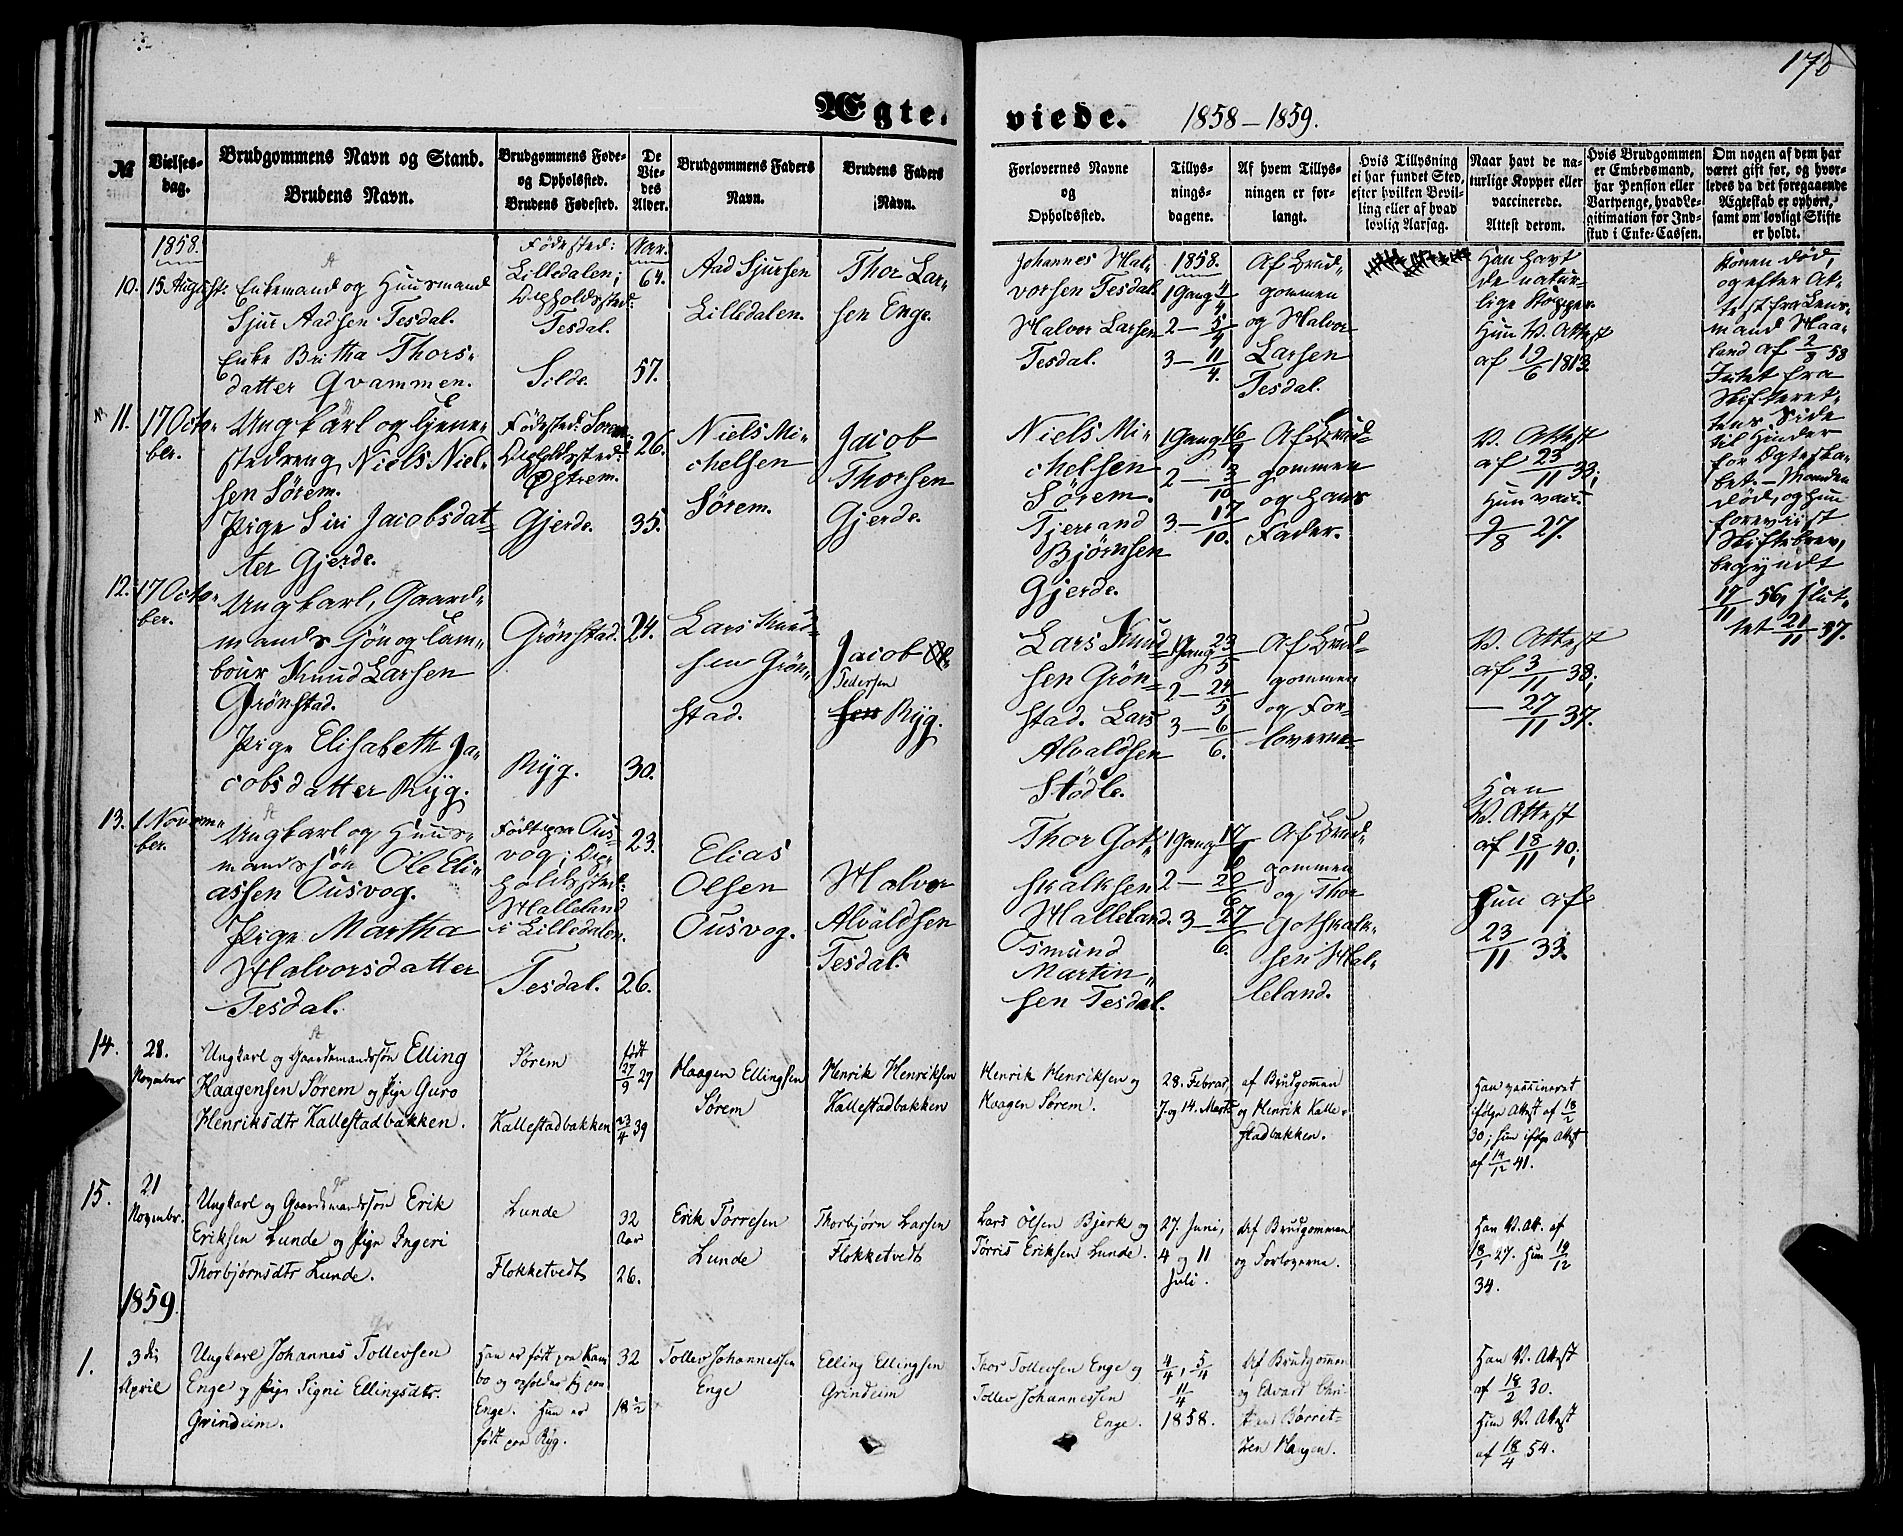 170
Ægte-
viede. 1858–1859.
№
Vielses-
dag.
Brudgommens Navn og Stand.
Brudens Navn.
Brudgommens Føde-
og Opholsted.
Brudens Fødested.
De
Vie-
des
Alder.
Brudgommens Faders
Navn.
Brudens Faders
Navn.
Forlovernes Navne
og
Opholdsted.
Tillys-
nings-
dagene.
Af hvem Tillys-
ningen er for-
langt.
Hvis Tillysning
ei har fundet Sted,
efter hvilken Bevil-
ling eller af hvad
lovlig Aarsag.
Naar havt de na-
turlige Kopper eller
vaccinerede.
Attest derom.
Hvis Brudgommen
er Embedsmand,
har Pension eller
Vartpenge, hvad Le-
gitimation for Ind-
skud i Enke-Cassen.
Om nogen af dem har
været gift før, og hvor-
ledes da det foregaaende
Ægteskab er ophørt,
samt om lovligt Skifte
er holdt.
1858.
10. 15 August.
Enkemand og Huusmand
Sjur Aadsen Tesdal.
Enke Britha Thors-
datter Qvammen.
Fødested:
Lilledalen;
Opholdssted:
Tesdal.
Silde.
Aar.
64.
57.
Aad Sjursen
Lilledalen.
Thor Lar-
sen Enge.
Johannes Hal-
vorsen Tesdal.
Halvor Larsen
Tesdal.
1858.
1 Gang 4/4
2 — 5/4
3 — 11/4.
Af Brud-
gommen
og Halvor
Larsen
Tesdal.
Han havt
de natur-
lige Kopper.
Hun V. Attest
af 19/6 1813.
Konen død
og efter At-
test fra Lens-
mand Haa-
land af 2/8 58
Intet fra
Skifteret-
tens Side
til Hinder
for Ægteska-
bet. – Manden
død, og hun
foreviist
Skiftebrev,
begyndt
19/11 56, slut-
tet 21/11 57.
11. 17 Octo-
ber.
Ungkarl og tjene-
stedreng Niels Niel-
sen Sørem.
Pige Siri Jacobsdat-
ter Gjerde.
Fødested: Sørem
Opholdssted:
Østrem.
Gjerde.
26.
35.
Niels Mi-
chelsen
Sørem.
Jacob
Thorsen
Gjerde.
Niels Mi-
chelsen
Sørem.
Tjerrand
Bjørnsen
Gjerde.
1 Gang 16/9
2 — 3/10
3 — 17/10.
Af Brud-
gommen
og hans
Fader.
V. Attest
af 23/11 33,
Hun vacc.
9/8 27.
12. 17 Octo-
ber.
Ungkarl, Gaard-
mands søn og Tam-
bour Knud Larsen
Grönstad.
Pige Elisabeth Ja-
cobsdatter Ryg.
Grönstad.
Ryg.
24.
30.
Lars Knud-
sen Grön-
stad.
Jacob
Pedersen
Ryg.
Lars Knud-
sen Grön-
stad. Lars
Alvaldsen
Stödle.
1 Gang 23/5
2 — 24/5
3 — 6/6.
Af Brud-
gommen
og For-
loverne.
V. Attest
af 3/11 38.
— 27/11 37.
13. 1 Novem-
ber.
Ungkarl og Huus-
mandssön Ole Eli-
assen Ousvog.
Pige Martha
Halvorsdatter
Tesdal.
Født paa Ous-
vog; Op-
holdssted:
Halleland
i Lilledalen.
Tesdal.
23.
26.
Elias
Olsen
Ousvog.
Halvor
Alvaldsen
Tesdal.
Thor Got-
skalksen
Halleland.
Osmund
Martin-
sen Tesdal.
1 Gang 17/6
2 — 20/6
3 — 27/6.
Af Brud-
gommen
og Thor
Gothskalk-
sen Hal-
leland.
Han
V. Attest
af 18/11 40,
Hun af
23/11 33.
14. 28.
November
Ungkarl og Gaardmandssøn Elling
Haagensen Sørem og Pige Guro
Henriksdtr Kallestadbakken.
Sørem
Kallestadbakken
født
27/9 27
23/4 39
Haagen Ellingsen
Sørem
Henrik Henriksen
Kallestadbakken
Henrik Henriksen og
Haagen Sørem.
28. Februar
7. og 14. Marts
af Brudgommen
og Henrik Kalle-
stadbakken.
Han vaccineret
ifølge Attest af 18/2
30; hun ifølge Attest
af 14/12 41.
15. 21
Novembr.
Ungkarl og Gaardmandssøn Erik
Eriksen Lunde og Pige Ingeri
Thorbjørnsdtr Lunde.
Lunde
Flokketvedt
32
Aar
26.
Erik Tørresen
Lunde
Thorbjørn Larsen
Flokketvedt
Lars Olsen Bjerk og
Tørris Eriksen Lunde.
27. Juni,
4 og 11
Juli.
Af Brudgommen
og Forloverne.
Han V. At. af
18/1 27. Hun 19/12
34.
1859.
1. 3die
April
Ungkarl Johannes Tollevsen
Enge og Pige Signi Ellingsdtr.
Grindeim.
Han er født paa Kam-
bo og opholder sig paa
Enge. Hun er
født paa Ryg.
32
18 1/2
Tollev Johannessen
Enge
Elling Ellingsen
Grindeim
Thor Tollevsen Enge og
Tollev Johannessen
Enge.
4/4, 5/4
11/4
1858.
Af Brudgommen
og Edvard Chri-
stian Børret-
zen Haugen.
Han V. Attest
af 18/2 30.
Hun V. Attest
af 18/4 54.